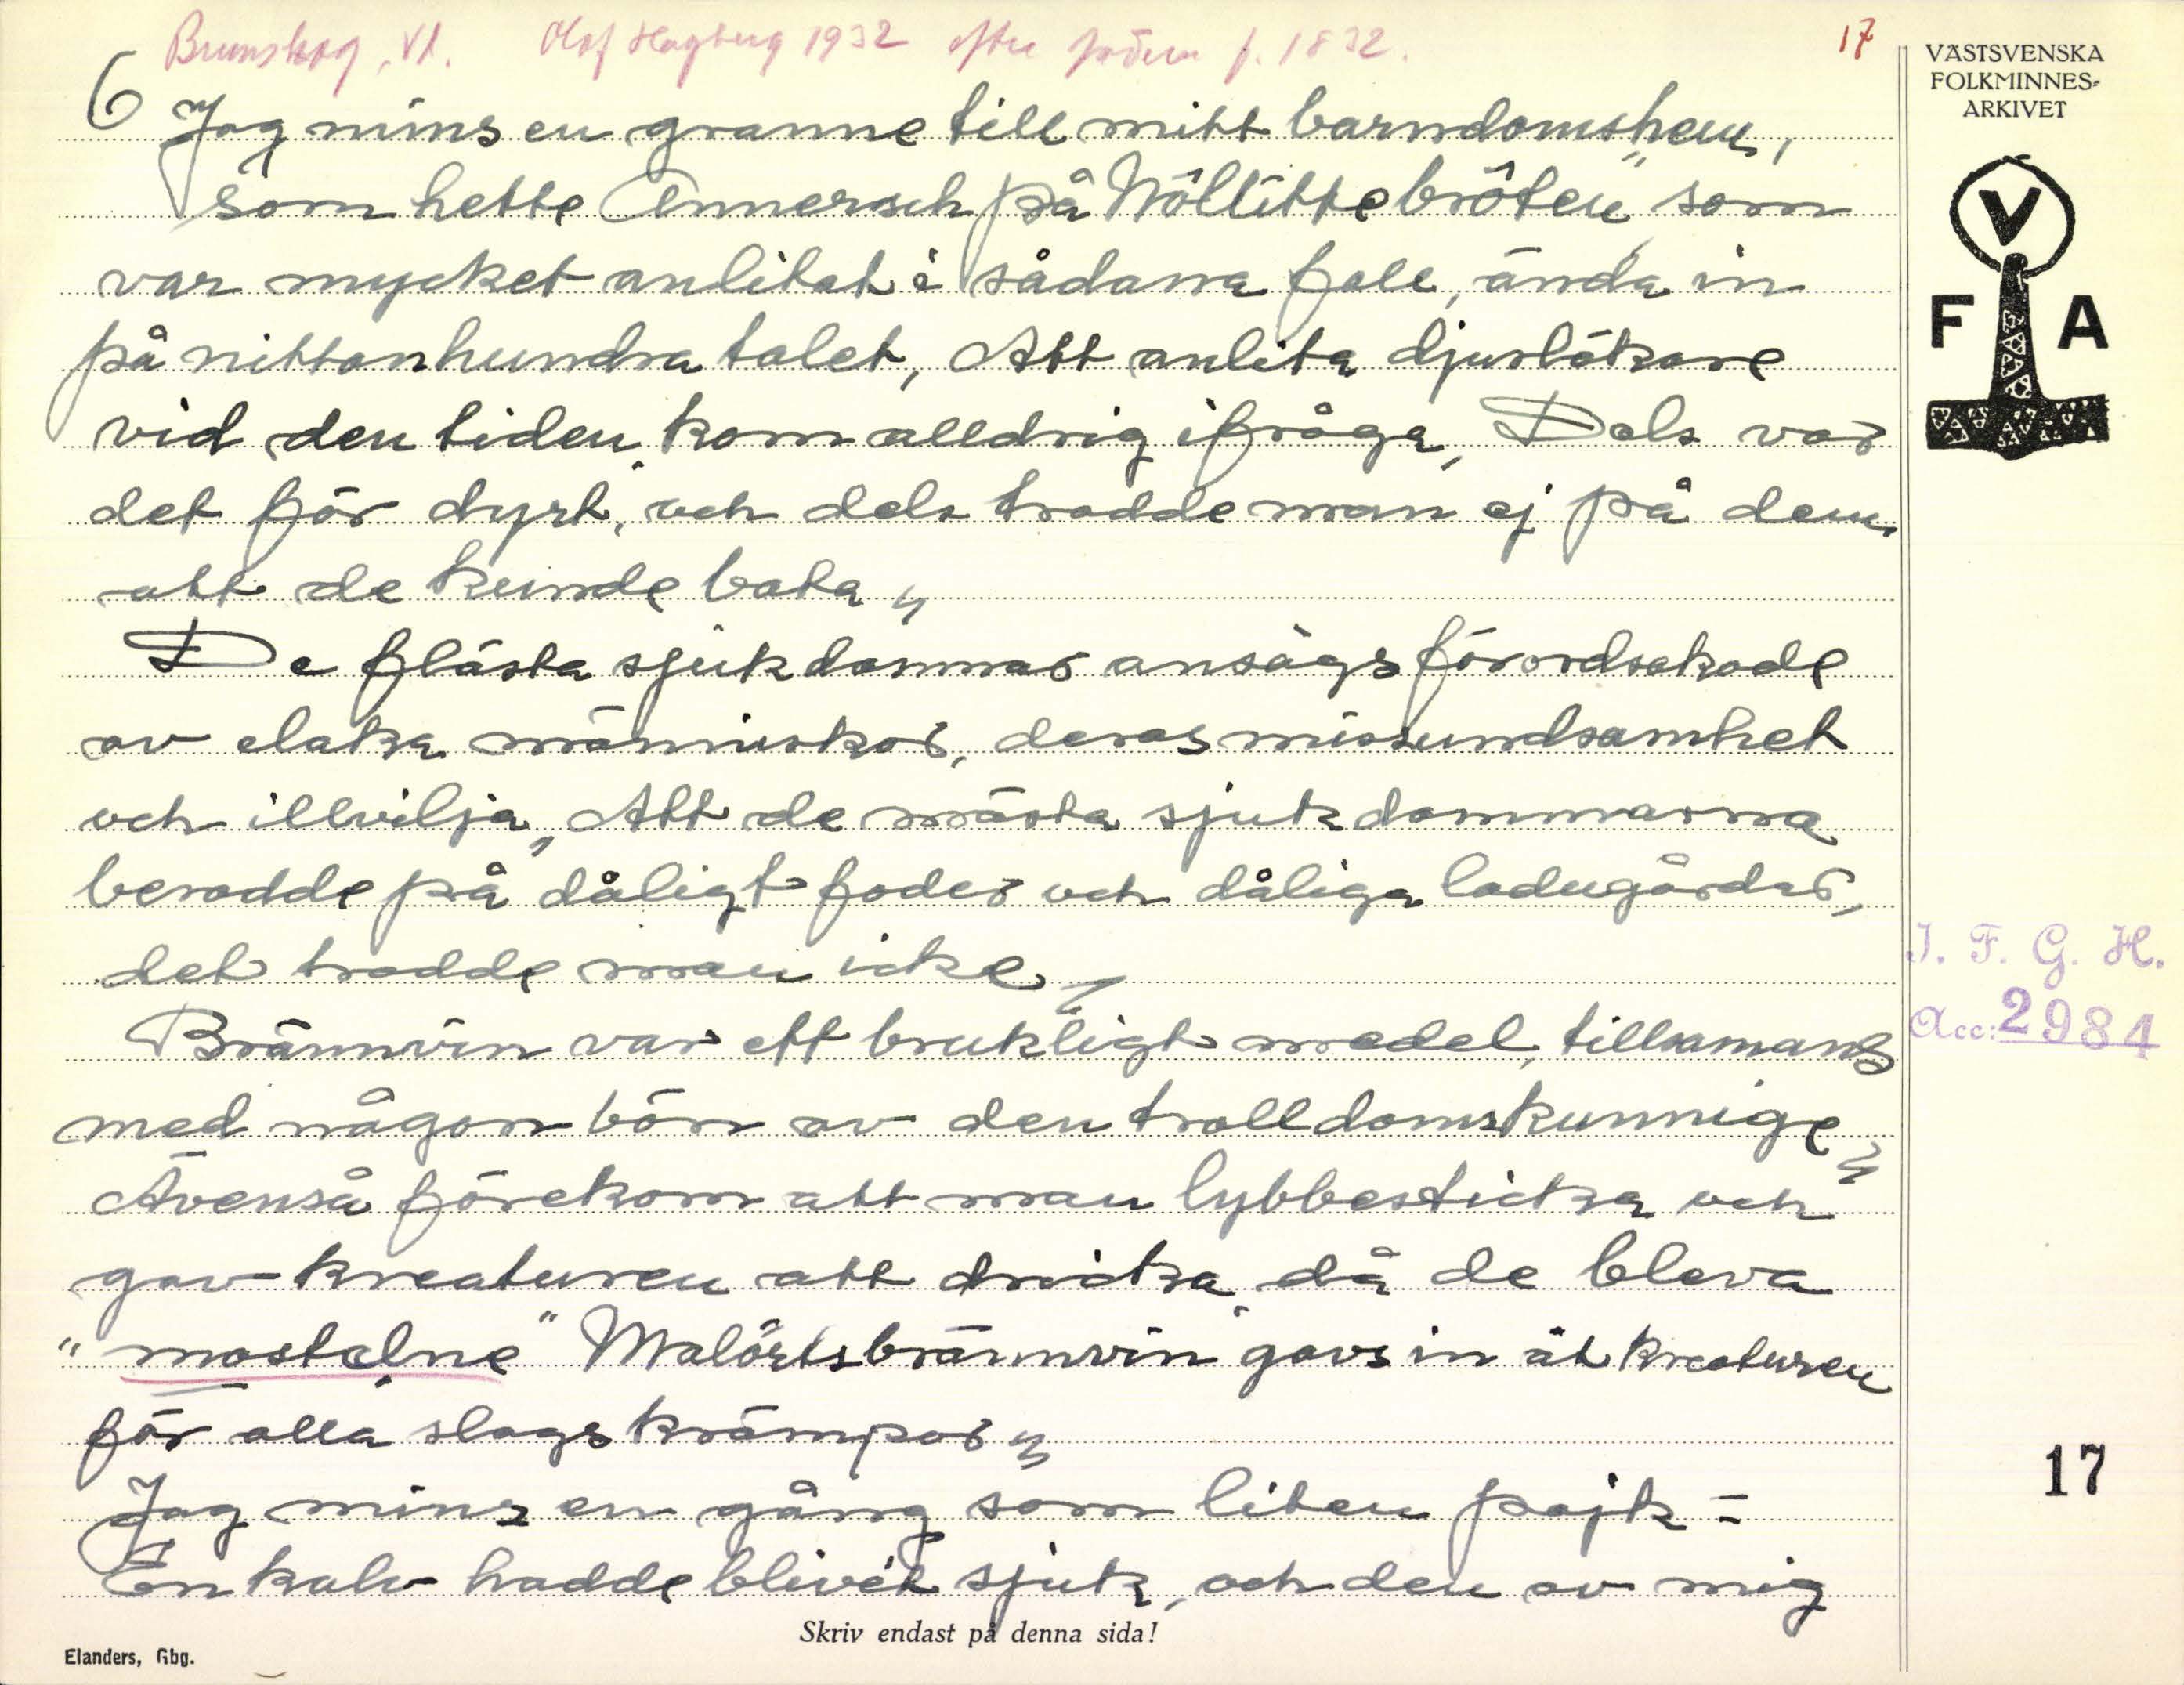 Brunskog, Vl. Olof Hagberg 1932 efter fadern f. 1832.
17
6
Jag mins en granne till mitt barndomshem,
som hette Annersch på Nôllittebrôten" som
var mycket anlitat i sådana fall, ända in
på nittonhundra talet, Att anlita djurläkare
vid den tiden kom alldrig ifråga, Dels var
det för dyrt, och dels trodde man ej på dem,
att de kunde bota
De flästa sjukdommar ansågs förordsakade
av elaka människor, deras missundsamhet
och illvilja, Att de mästa sjukdommarna
berodde på dåligt foder och dåliga ladugårdar,
det trodde man icke,
Brännvin var ett brukligt medel, tillsamans
med någon bön av den trolldomskunnige
Ävenså förekom att man lybbesticka och
gav kreaturen att dricka då de bleva
"mostelne" Malörtsbrännvin gavs in åt kreaturen
för alla slags krämpor
Jag mins en gång som liten pojk =
En kalv hadde blivit sjuk, och den av mig
Skriv endast på denna sida!
Elanders, Gbg.
VÄSTSVENSKA
FOLKMINNES-
ARKIVET
V
F A
I. F. G. H.
Acc: 2984
17